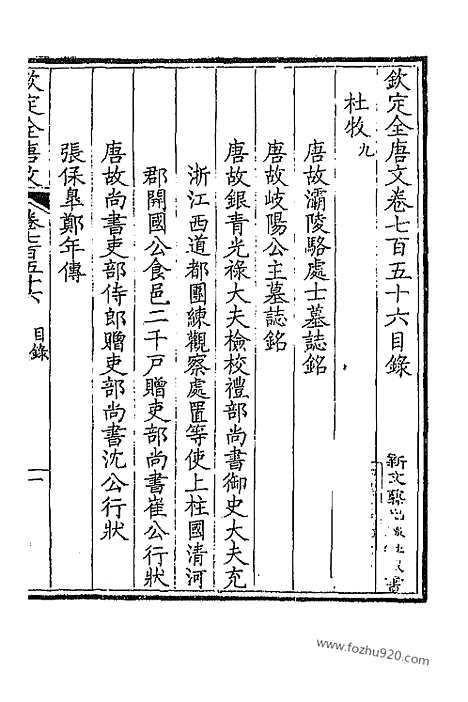 欽定全唐文卷七百五十六目錄
杜牧九
唐故灞陵駱處士墓誌銘
唐故岐陽公主墓誌銘
唐故銀青光祿大夫檢校禮部尚書御史大夫充
浙江西道都團練觀察處置等使上柱國清河
郡開國公食邑二千戶贈吏部尚書崔公行狀
唐故尚書吏部侍郎贈吏部尚書沈公行狀
張保臯鄭年傳
欽定全唐文 卷七百五十六 目錄 一
www.fozhu920.com